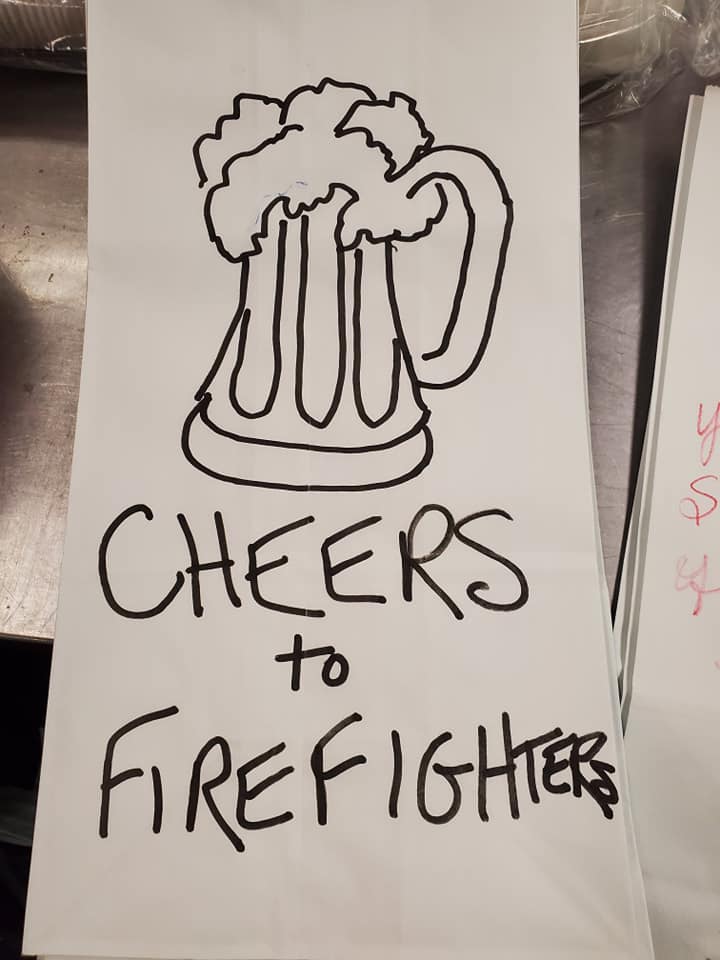 CHEERS
to
FIREFIGHTERS